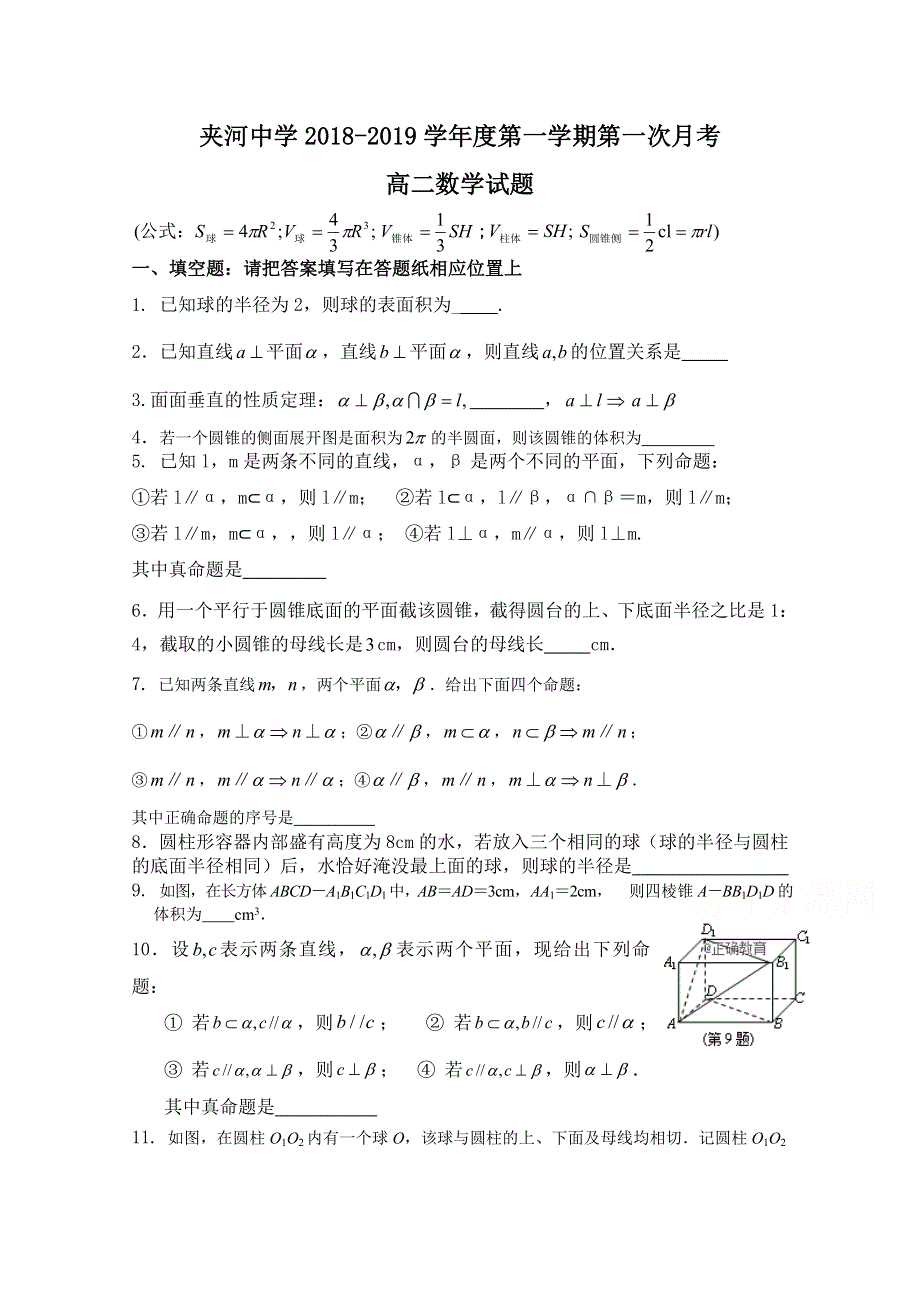 夹河中学2018-2019学年度第一学期第一次月考
高二数学试题
(公式：S球=4πR²;V球=4/3πR³;V锥体=1/3SH；V柱体=SH;S圆锥侧=1/2cl=πrl)
一、填空题：请把答案填写在答题纸相应位置上
1. 已知球的半径为2，则球的表面积为_____.
2．已知直线a⊥平面α，直线b⊥平面α，则直线a,b的位置关系是_____
3.面面垂直的性质定理：α⊥β,α∩β=l,________，a⊥l⇒a⊥β
4．若一个圆锥的侧面展开图是面积为2π的半圆面，则该圆锥的体积为________
5. 已知l，m是两条不同的直线，α，β是两个不同的平面，下列命题：
①若l∥α，m⊂α，则l∥m； ②若l⊂α，l∥β，α∩β＝m，则l∥m；
③若l∥m，m⊂α，，则l∥α； ④若l⊥α，m∥α，则l⊥m.
其中真命题是_________
6．用一个平行于圆锥底面的平面截该圆锥，截得圆台的上、下底面半径之比是1：
4，截取的小圆锥的母线长是3cm，则圆台的母线长_____cm．
7．已知两条直线m，n，两个平面α，β．给出下面四个命题：
①m∥n，m⊥α⇒n⊥α；②α∥β，m⊂α，n⊂β⇒m∥n；
③m∥n，m∥α⇒n∥α；④α∥β，m∥n，m⊥α⇒n⊥β．
其中正确命题的序号是_________
8．圆柱形容器内部盛有高度为8cm的水，若放入三个相同的球（球的半径与圆柱
的底面半径相同）后，水恰好淹没最上面的球，则球的半径是_________________
9． 如图，在长方体ABCD－A₁B₁C₁D₁中，AB＝AD＝3cm，AA₁＝2cm， 则四棱锥A－BB₁D₁D的
体积为____cm³．
10．设b,c表示两条直线，α,β表示两个平面，现给出下列命
题：
① 若b⊂α,c//α，则b//c； ② 若b⊂α,b//c，则c//α；
③ 若c//α,α⊥β，则c⊥β； ④ 若c//α,c⊥β，则α⊥β．
其中真命题是___________
D₁ C₁
@正确教育
A₁ B₁
D C
A B
(第9题)
11．如图，在圆柱O₁O₂内有一个球O，该球与圆柱的上、下面及母线均相切．记圆柱O₁O₂